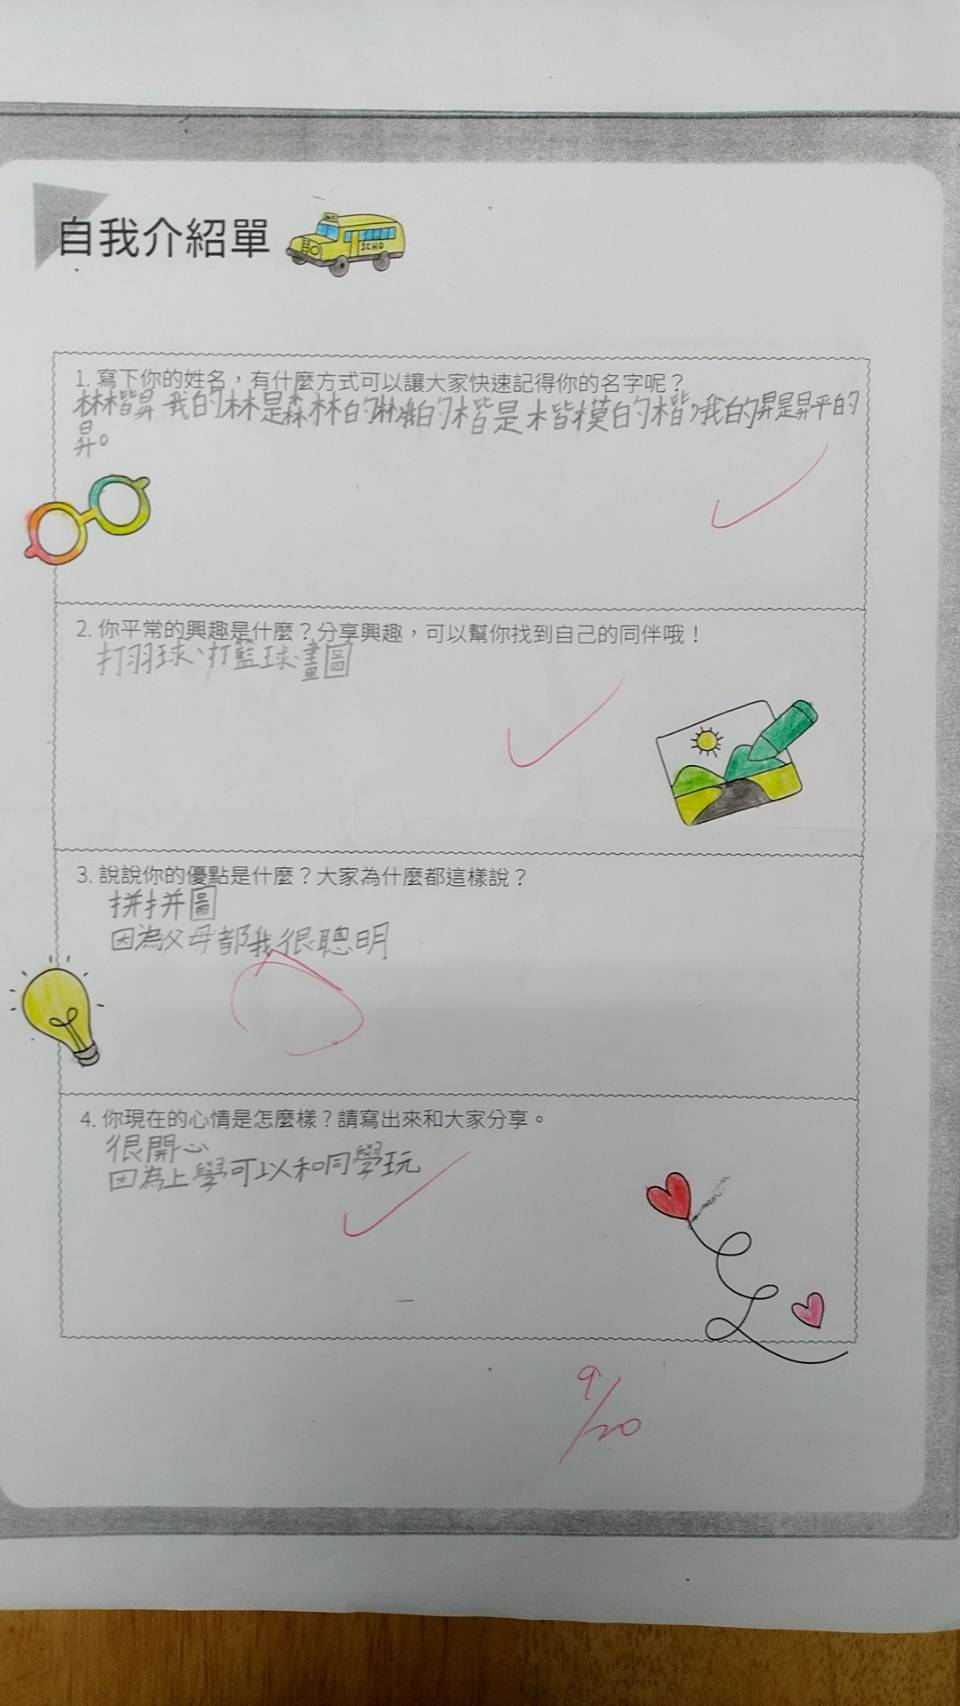 自我介紹單
SCHO
1. 寫下你的姓名，有什麼方式可以讓大家快速記得你的名字呢？
林楷昇 我的林是森林的林,我的楷是楷模的楷,我的昇是昇平的
昇。
2. 你平常的興趣是什麼？分享興趣，可以幫你找到自己的同伴哦！
打羽球、打籃球、畫圖
3. 說說你的優點是什麼？大家為什麼都這樣說？
拼拼圖
因為父母都我很聰明
4. 你現在的心情是怎麼樣？請寫出來和大家分享。
很開心
因為上學可以和同學玩
9/20